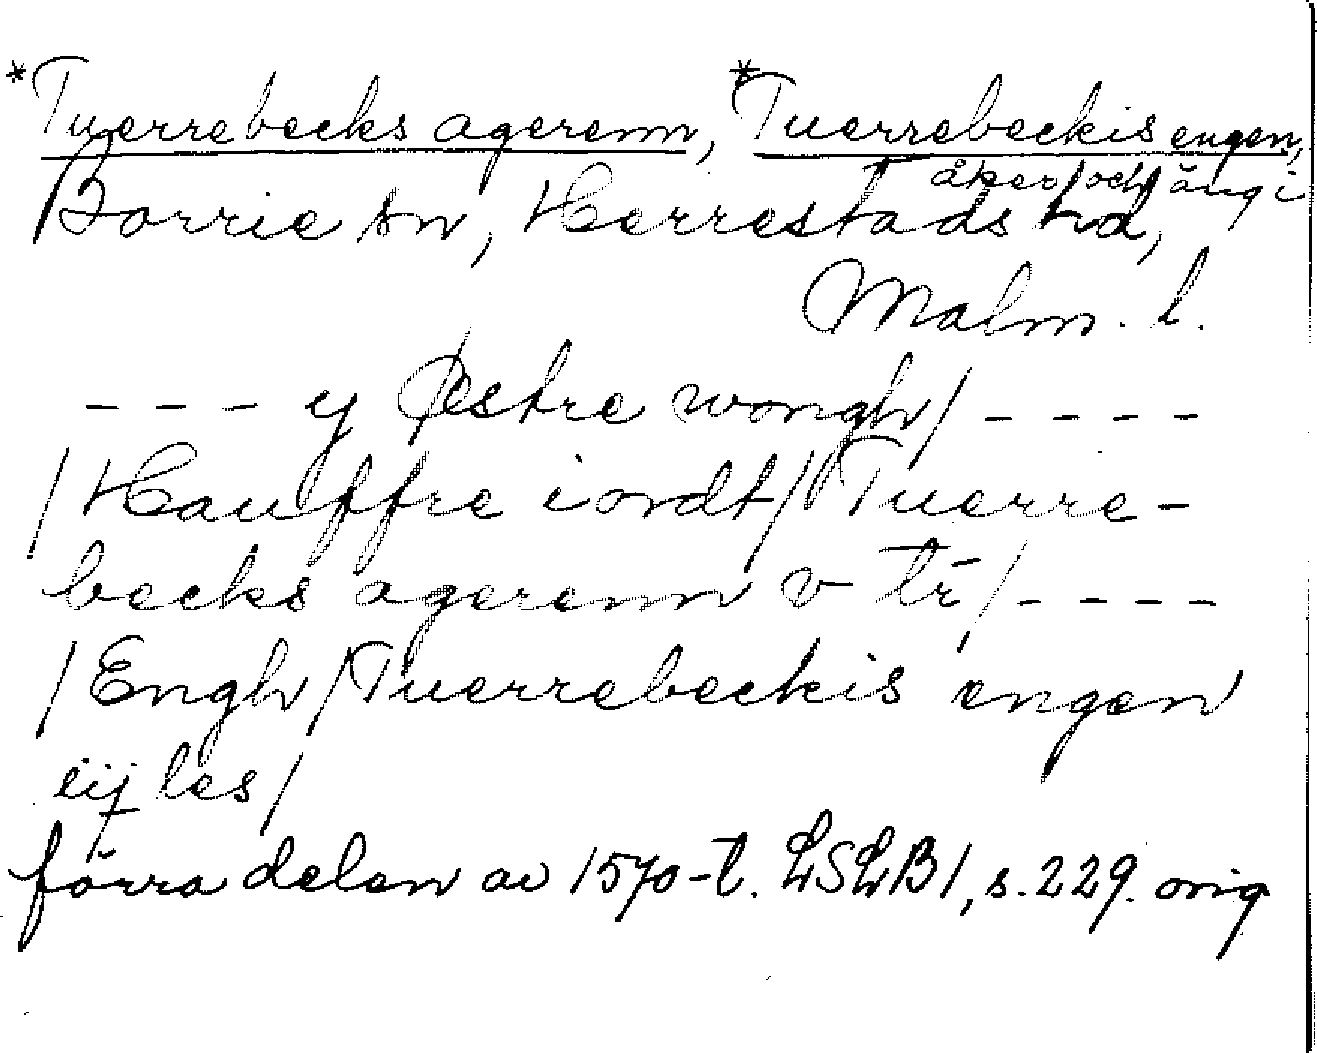 *Tuerrebecks agerenn, *Tuerrebeckis engen,
åker och äng i
Borrie sn, Herrestads hd,
Malm. l.
- - - y Østre wongh / - - - -
/ Hauffre iordt / Tuerre-
becks agerenn v tr̄ / - - - -
/ Engh / Tuerrebeckis engen
iij les /
förra delen av 1570-t. LSLB1, s. 229. orig